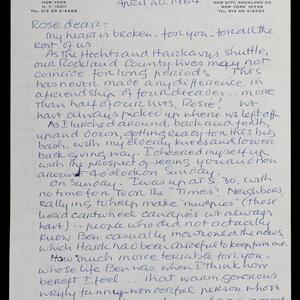 NEW YORK
April 20. 1964
NEW CITY, ROCKLAND CO.
NEW YORK
Rose dear:
My heart is broken - for you - for all the
rest of us
As the Hechts and Harkavys shuttle,
our Rockland County lives may not
coincide for long periods This
has never made any difference in
a friendship of four decades - more
than half of our lives, Rosie! We
have always picked up where we left off
As I lurched around, back and forth,
up and down, getting ready for this big
bash, with my elderly knees and lower
back giving way. I cheered myself up
with the prospect of seeing you and Men
around 4 o'clock on Sunday.
On Sunday. I was up at 8.30, with
no time for TV or the "Times" Neighbors,
rallying to help make "mudpies" (those
lurid cartwheel canapes we always
have) -- people who did not actually
know Ben casually mentioned the news,
which Hank had been careful to keep from me.
How much more terrible for you.
whose life Ben was, when I think how
bereft I feel ... that warm, generous
wryly funny, wonderful person, whose